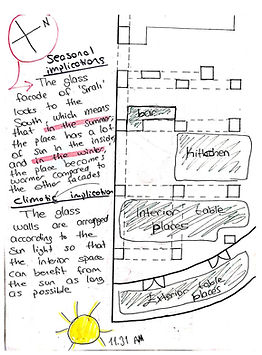 N
Seasonal
implications
The glass
facade of 'Sıralı'
looks to the
South, which means
that in the summer,
the place has a lot
of sun in the inside,
and in the winter,
the place becomes
warmer compared to
the other facades
Climatic implication
The glass
walls are arranged
according to the
Sun light so that
the interior space
can benefit from
the sun as long
as possible
bar
Kitkchen
Interior table
places
Exterior table
places
11.31 AM